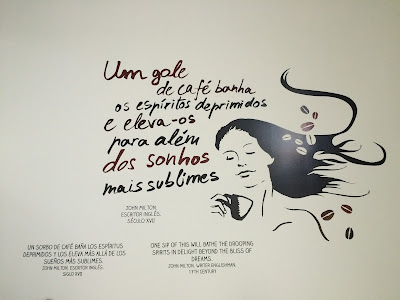 Um gole
de café banha
os espíritos deprimidos
e eleva-os
para além
dos sonhos
mais sublimes
JOHN MILTON,
ESCRITOR INGLÊS,
SÉCULO XVII
UN SORBO DE CAFÉ BAÑA LOS ESPÍRITUS
DEPRIMIDOS Y LOS ELEVA MÁS ALLÁ DE LOS
SUEÑOS MÁS SUBLIMES.
JOHN MILTON, ESCRITOR INGLÉS,
SIGLO XVII
ONE SIP OF THIS WILL BATHE THE DROOPING
SPIRITS IN DELIGHT BEYOND THE BLISS OF
DREAMS.
JOHN MILTON, WRITER ENGLISHMAN,
17TH CENTURY